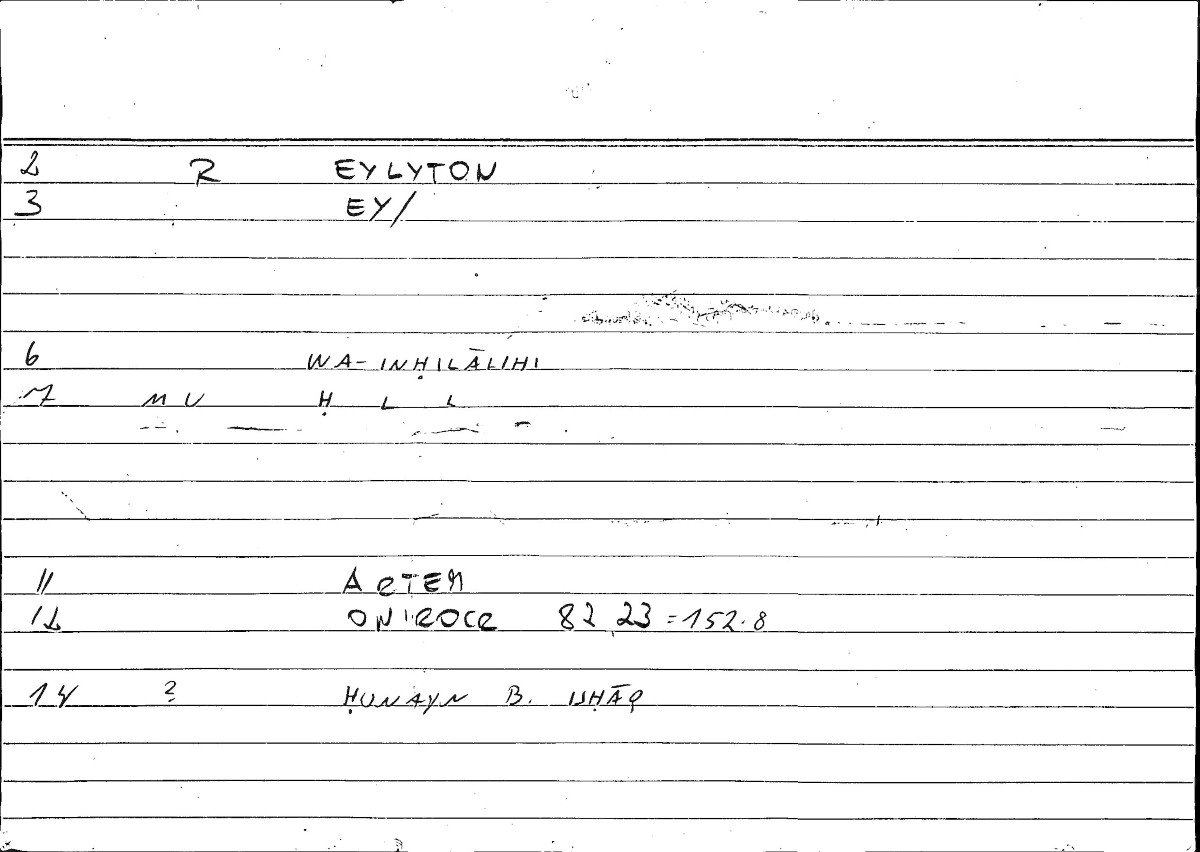 2 R EYLYTON
3 EY/
6 WA-INḤILĀLIHI
7 MU Ḥ L L
11 ARTEM
12 ONIROCR 82 23 = 152.8
14 ? ḤUNAYN B. ISḤĀQ